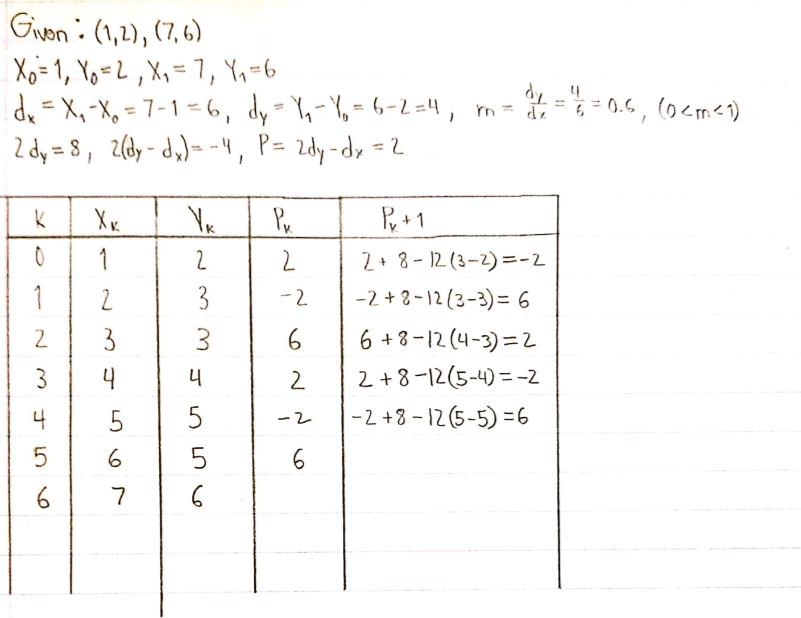 Given: (1,2), (7,6)
X₀=1, Y₀=2, X₁=7, Y₁=6
dₓ = X₁-X₀ = 7-1 = 6, dy = Y₁-Y₀ = 6-2=4, m = dy/dx = 4/6 = 0.6, (0<m<1)
2dy=8, 2(dy-dₓ)=-4, P= 2dy-dx = 2
K Xₖ Yₖ Pₖ Pₖ+1
0 1 2 2 2+8-12(3-2)=-2
1 2 3 -2 -2+8-12(3-3)=6
2 3 3 6 6+8-12(4-3)=2
3 4 4 2 2+8-12(5-4)=-2
4 5 5 -2 -2+8-12(5-5)=6
5 6 5 6
6 7 6